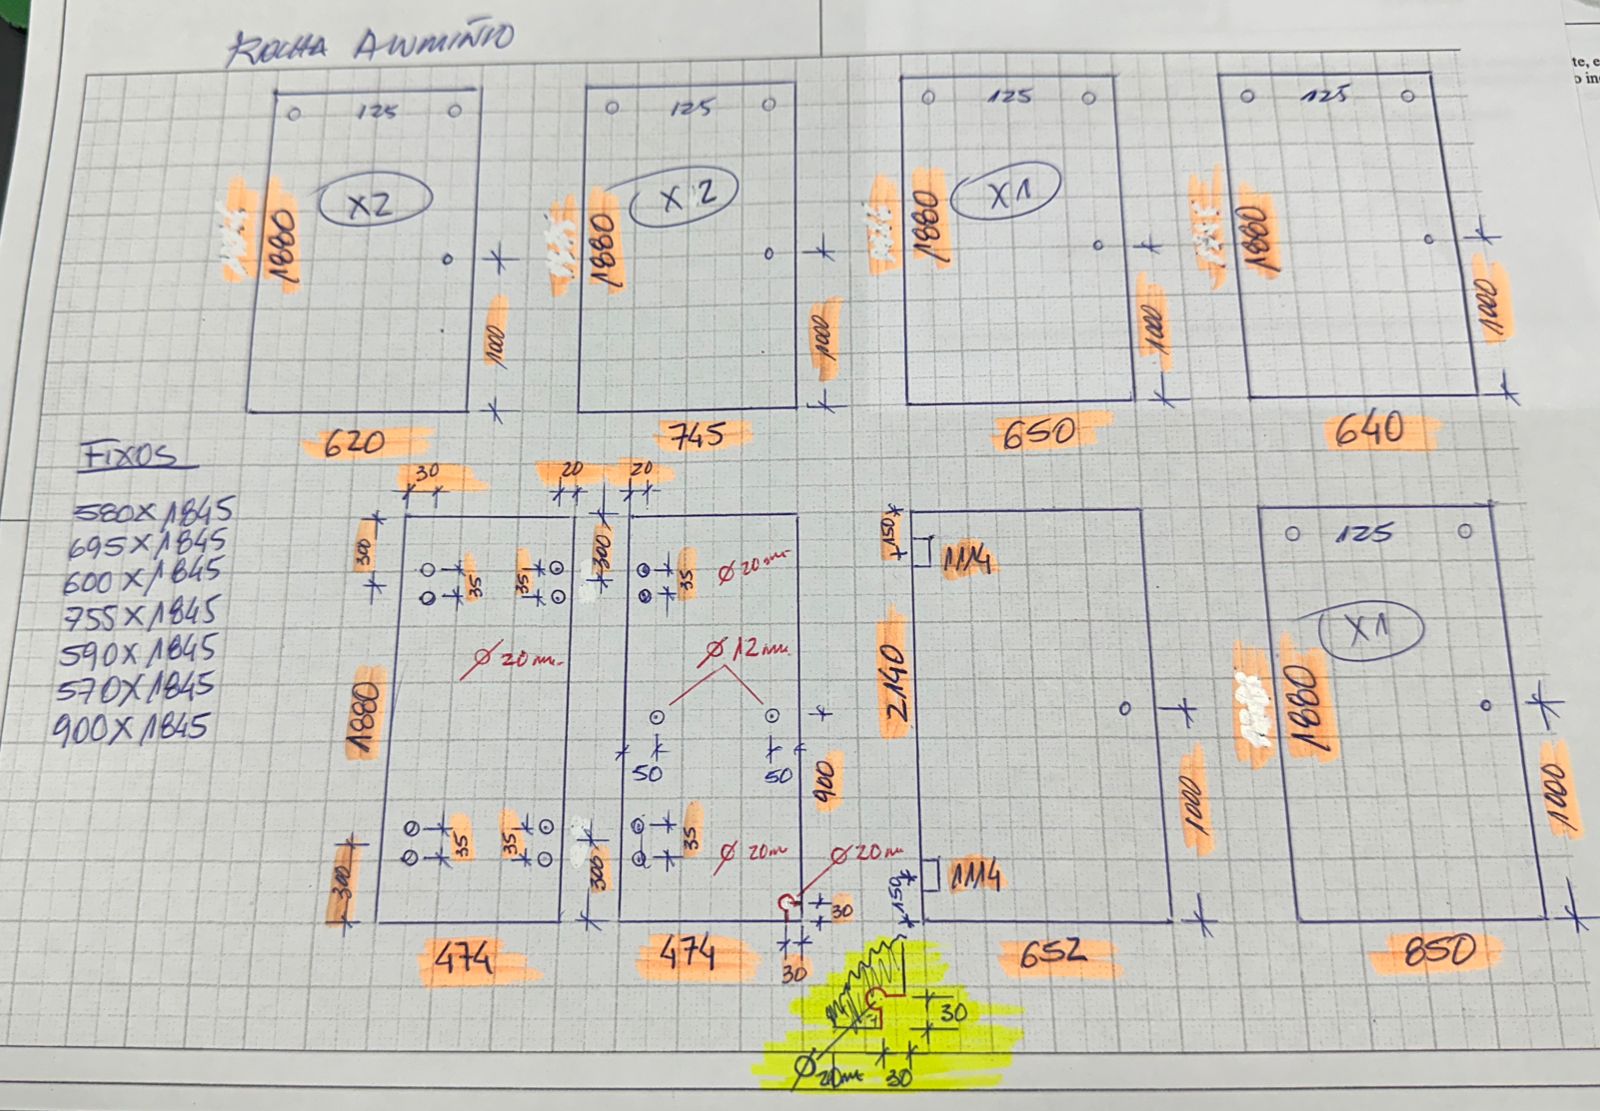 ROCHA ALUMIÑIO
te, e
o in
125
125
125
125
X2
X2
X1
1880
1880
1880
1880
1000
1000
1000
1000
620
745
650
640
FIXOS
580X1845
695X1845
600X1845
755X1845
590X1845
570X1845
900X1845
30
20
20
300
35
35
300
35
Ø20mm
Ø20mm.
Ø12mm.
1880
50
50
900
300
35
35
300
35
Ø20m
Ø20m
30
30
474
474
150
1114
2140
1000
150
1114
652
125
X1
1880
1000
850
30
30
Ø20mm